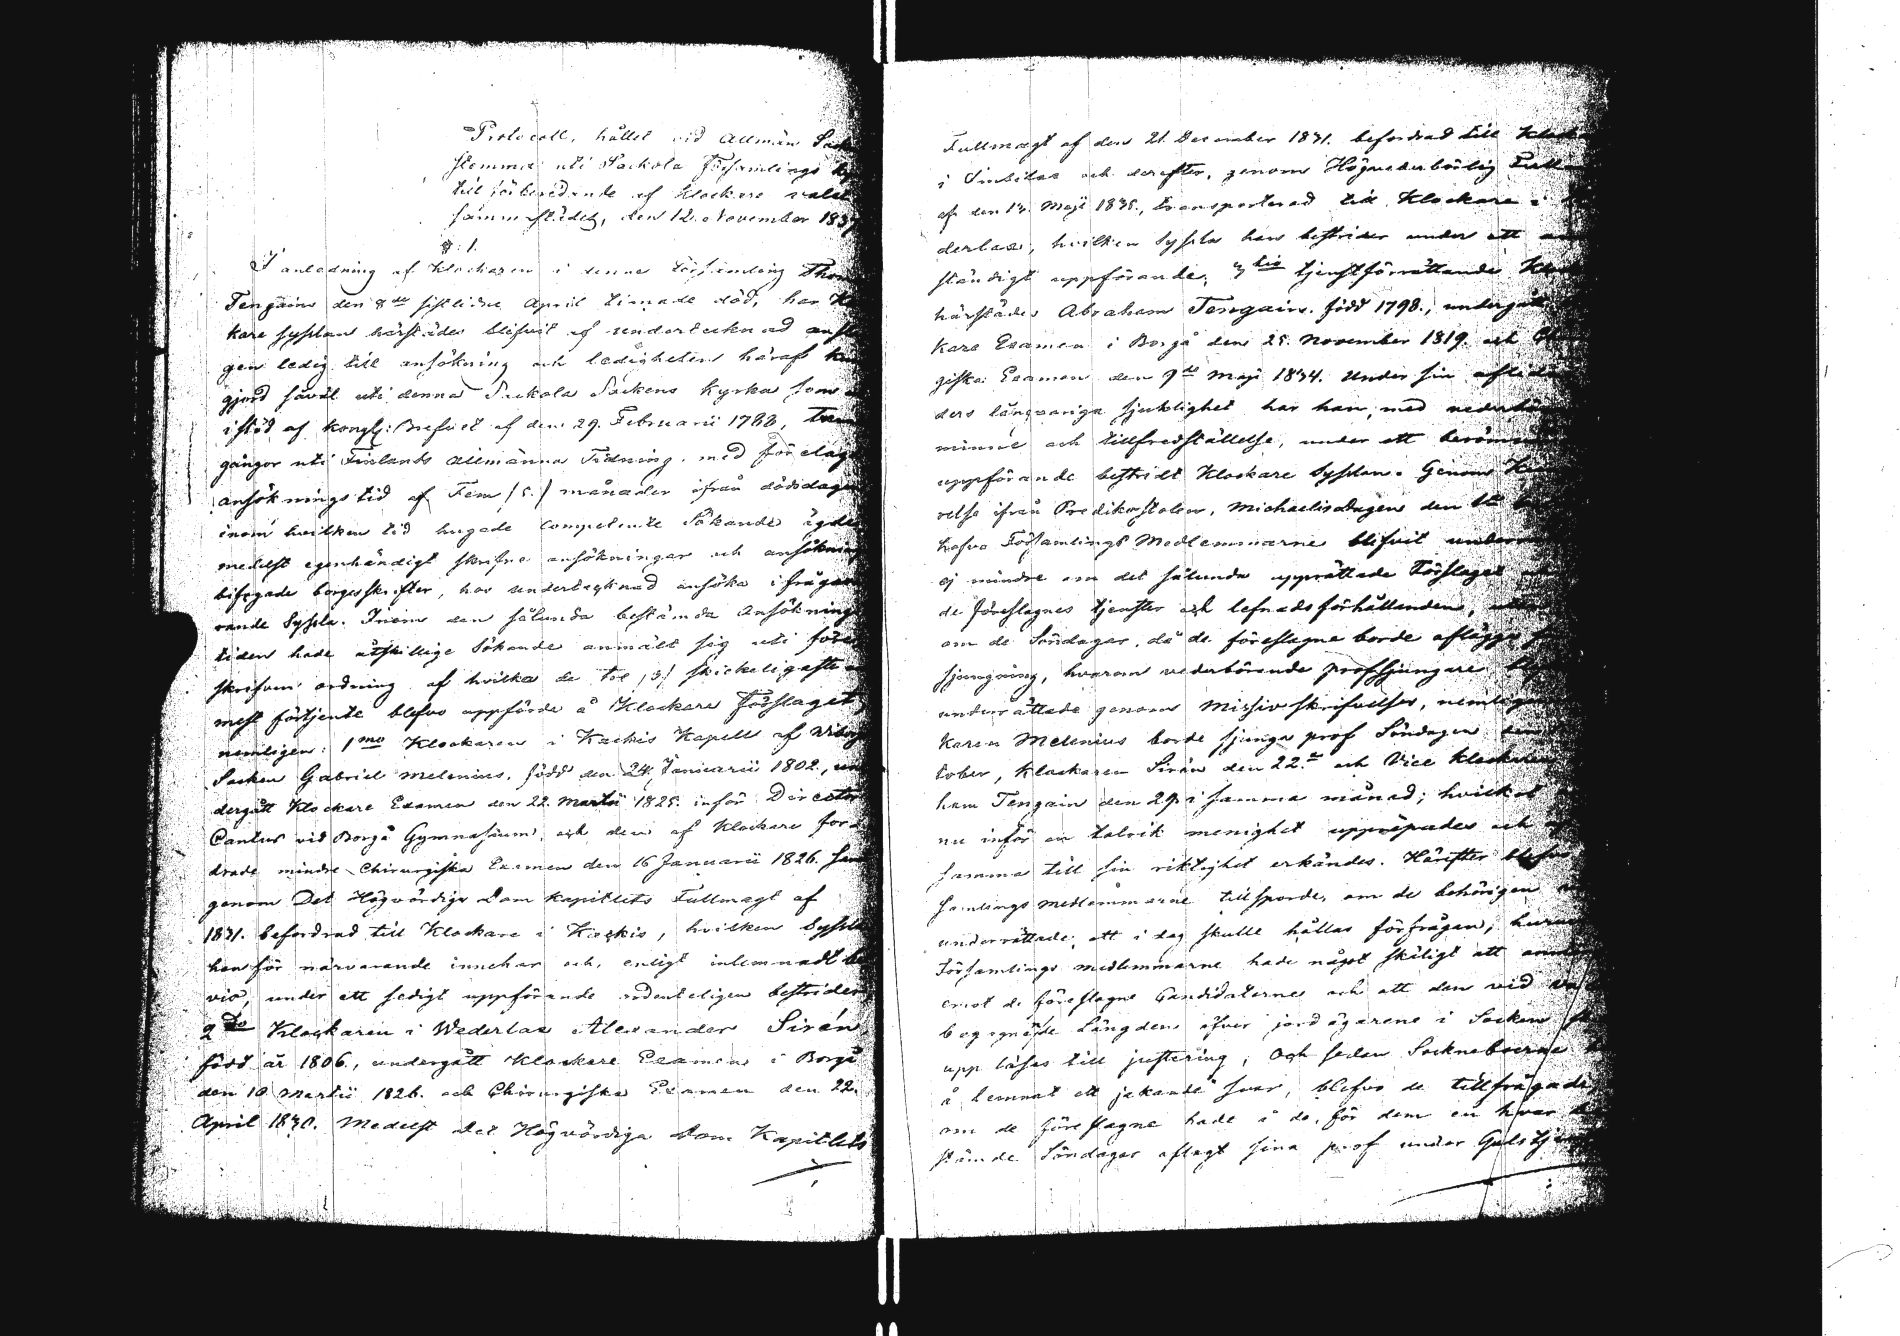 Protocoll, hållet vid Allmän Sock
stemma uti Sackola Församlings
till förberedande af Klockare valet
sammastädes, den 12. November 1837
§. 1.
I anledning af Klockaren i denne Församling Thom
Tengains den 8de sistlidne April timade död, har Klo
kare sysslan härstädes blifvit af undertecknad ansla
gen ledig till ansökning och ledigheten häraf kun
gjord såväl uti denna Sackola Sockens Kyrka som
i stöd af Kongl: Brefvet af den 29. Februarii 1788, trenne
gångor uti Finlands Allmänna Tidning, med förelagd
ansöknings tid af Fem /5./ månader ifrån dödsdagen
inom hvilken tid hugade competente Sökande ägde
medelst egenhändigt skrifne ansökningar och ansökning
bifogade borgesskrifter, hos undertecknad ansöka ifrågava
rande Syssla. Inom den sålunda bestämda Ansöknings
tiden hade åtskillige Sökande anmält sig uti före
skrifven ordning af hvilka de tre /3/ skickeligaste och
mest förtjente blefvo uppförde å Klockare Förslaget,
nemligen: 1mo Klockaren i Kackis Kapell af Wiborgs
Socken Gabriel Melenius, född den 24. Januarii 1802., un
dergått Klockare Examen den 22. Martii 1825. inför Director
Cantus vid Borgå Gymnasium, och den af Klockare for
drade mindre Chirurgiska Examen den 16 Januarii 1826. samt
genom Det Högvördige Dom Kapitlets Fullmagt af
1831. befordrad till Klockare i Kackis, hvilken Syssla
han för närvarande innehar och, enligt inlemnadt be
vis, under ett sedigt uppförande ordenteligen bestrider,
2do Klockaren i Wederlax Alexander Sirén,
född år 1806., undergått Klockare Examen i Borgå
den 10 Martii 1826. och Chirurgiska Examen den 22.
April 1830. Medelst Det Högvördiga Dom Kapitlets
Fullmagt af den 21. December 1831. befordrad till Klocka
i och derefter, genom Högvederbörlig Full
af den 13. Maji 1835., transporterad till Klockare i
derlax, hvilken Syssla han bestrider under ett an
ständigt uppförande; 3tio tjenstförrättande Klock
härstädes Abraham Tengain. född 1798., undergått
kare Examen i Borgå den 25. November 1819. och Chir
giska Examen den 9de Maji 1834. Under sin aflidne
ders långvariga sjuklighet har han, med vederbör
minne och tillfredställelse, under ett beröm
uppförande bestridt Klockare Sysslan. Genom Kun
relse ifrån Predikostolen, Michaelis Dagen den 1ta
hafva Församlings Medlemmarne blifvit under
ej mindre om det sålunda upprättade Förslaget
de föreslagnes tjenster och lefnadsförhållanden,
om de Söndagar, då de föreslagne borde aflägga
sjungning, hvarom vederbörande profsjungare
underrättade genom Missiv skrifvelser, nemligen
karen Melenius borde sjunga prof Söndagen den
tober, Klockaren Sirén den 22.de och Vice klockaren
ham Tengain den 29. i samma månad; hvilket
nu inför en talrik menighet upprepades och
samma till sin riktighet erkändes. Härefter blefvo
samlings medlemmarne tillsporde, om de behörigen
underrättade, att i dag skulle hållas förfrågan, huru
Församlings medlemmarne hade något skäligt att
emot de föreslagne Candidaterne och att den vid
begagnade Längden öfver jordägarene i Socken
upp läsas till justering, Och sedan Sockneboerne
å lemnat ett jakande svar, blefvo de tillfrågade
om de föreslagne hade å de, för dem en hvar be
stämde Söndagar aflagt sina prof under Gudstjen